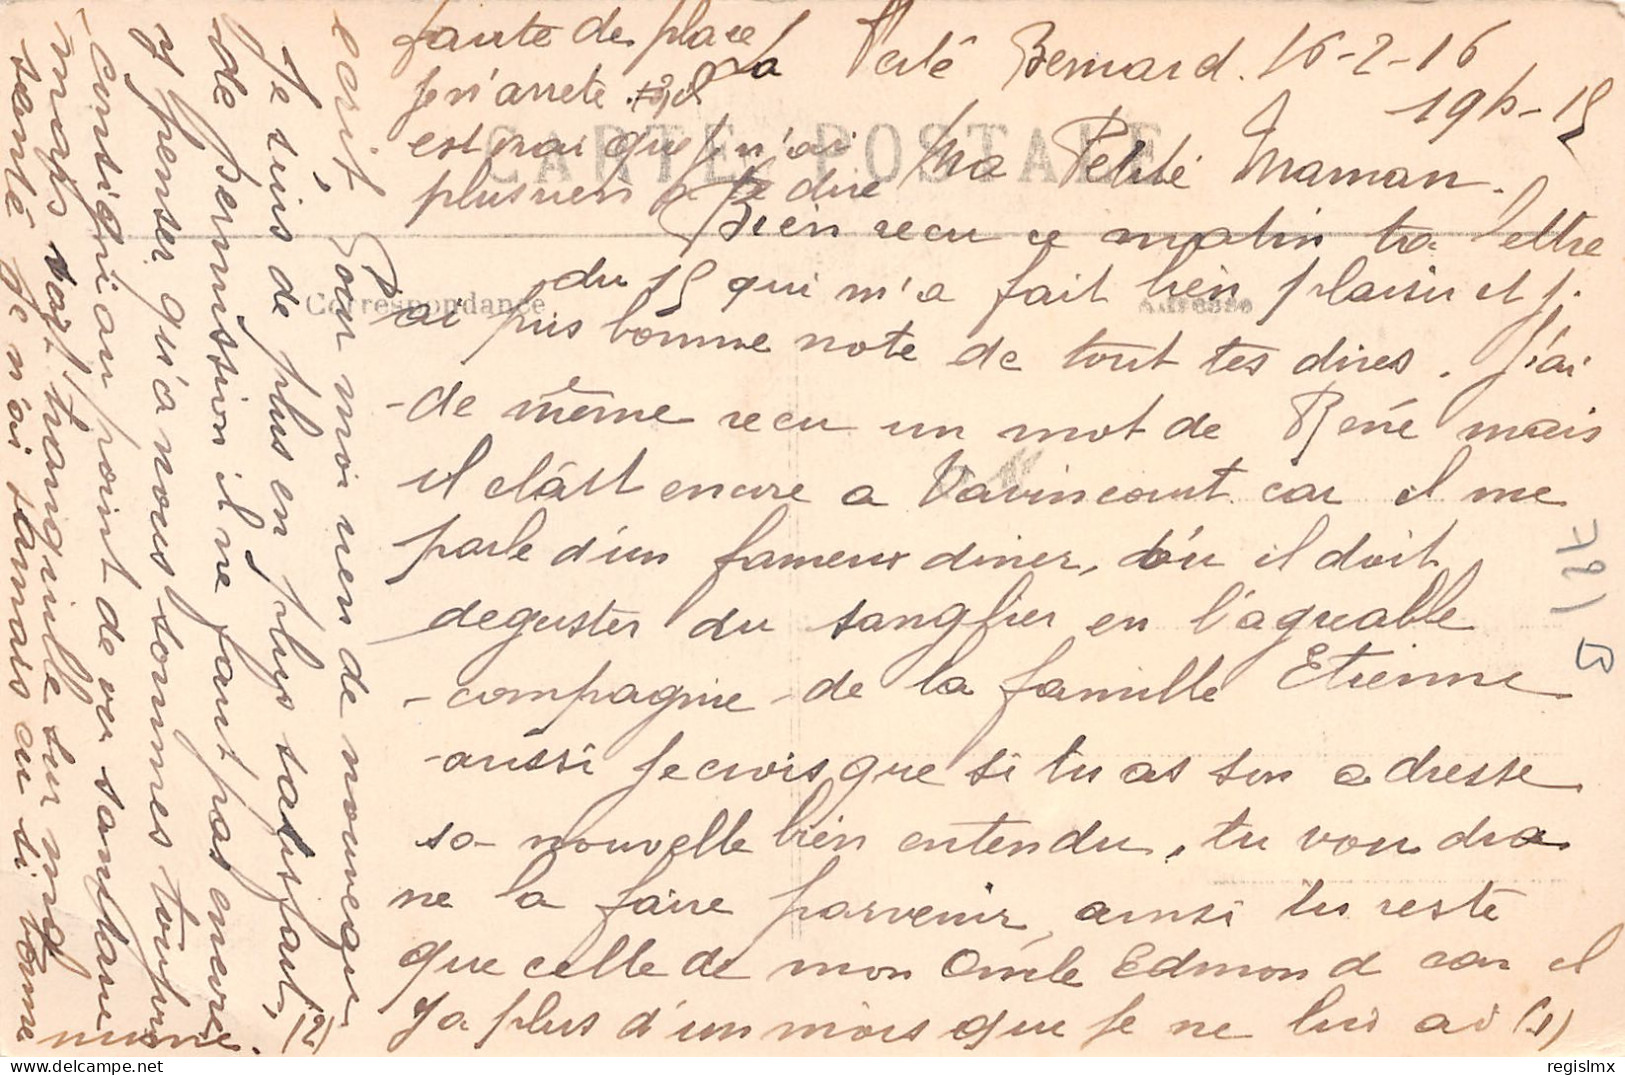 La Ferté Bernard. 16-2-16
19h-15
Ma Petite Maman.
Bien recu ce matin ta lettre
du 15 qui m'a fait bien plaisir et j'
ai pris bonne note de tout tes dires. J'ai
de même recu un mot de René mais
il était encore a Vavincourt car il me
parle d'un fameux diner, où il doit
deguster du sanglier en l'agreable
compagnie de la famille Etienne
aussi je crois que si tu as son adresse
sa nouvelle bien entendu, tu voudra
ne la faire parvenir, ainsi tu reste
que celle de mon Oncle Edmond car il
y a plus d'un mois que je ne lui ai (1)
ecrit. Pour moi rien de nouveau
Je suis de plus en plus satisfait, (2)
de permission il ne faut pas encore
y penser qu'a nous sommes toujours
consigni au point de vu sanitaire
mais soit tranquille sur ma
santé je n'ai jamais eu si bonne
mine.
faute de place
je n'arrete
est vrai que je n'ai
plus rien a te dire
CARTE POSTALE
Correspondance
Adresse
regislmx